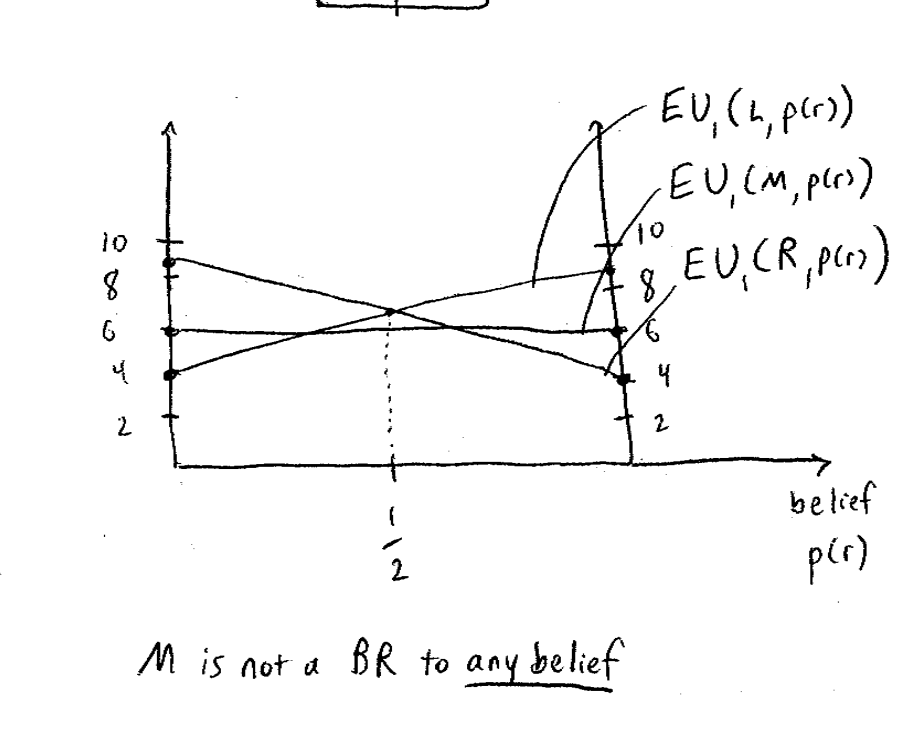 EU₁(L, p(r))
EU₁(M, p(r))
EU₁(R, p(r))
10 10
8 8
6 6
4 4
2 2
1/2
belief
p(r)
M is not a BR to any belief